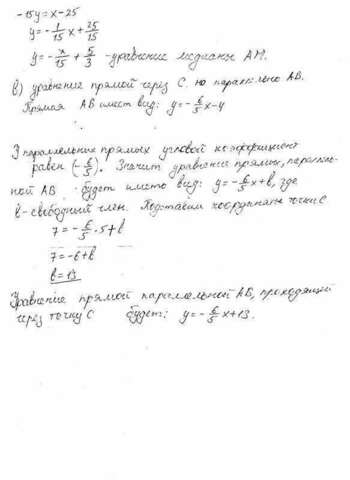 -15y = x - 25
y = -1/15 x + 25/15
y = -x/15 + 5/3 - уравнение медианы АМ.
в) уравнение прямой через С. но параллельно АВ.
Прямая АВ имеет вид: y = -6/5 x - 4
У параллельных прямых угловой коэффициент
равен (-6/5). Значит уравнение прямых, параллель-
ной АВ будет иметь вид: y = -6/5 x + b, где
b - свободный член. Подставим координаты точки С
7 = -6/5 · 5 + b
7 = -6 + b
b = 13
Уравнение прямой параллельной АВ, проходящей
через точку С будет: y = -6/5 x + 13.